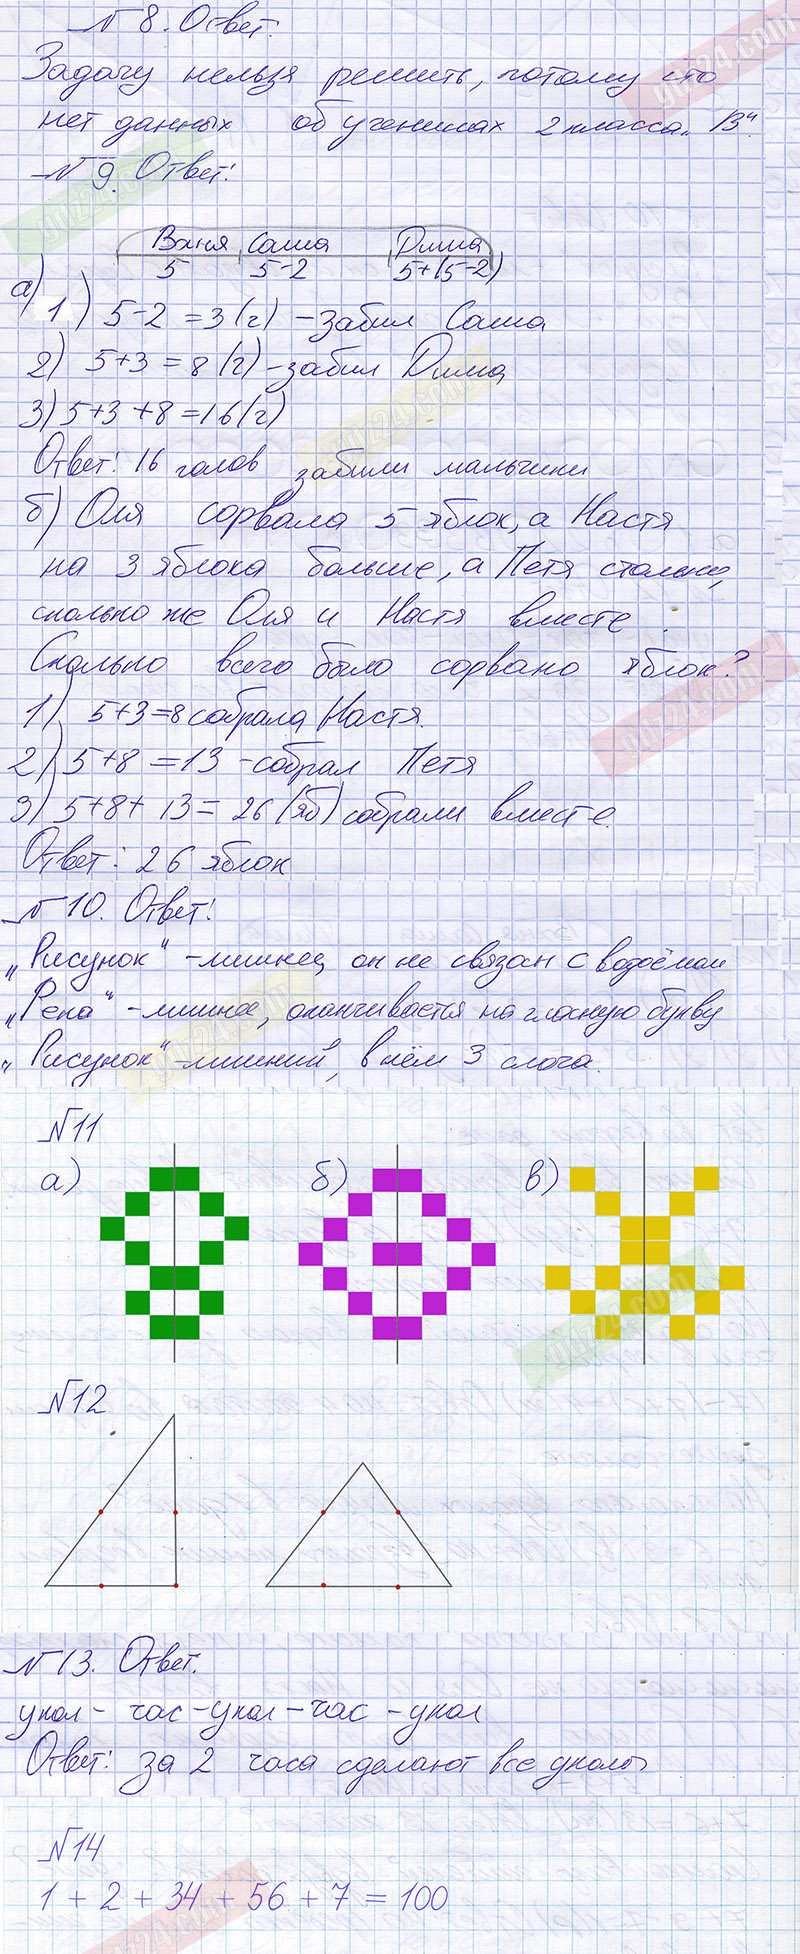 № 8. Ответ.
Задачу нельзя решить, потому сто
нет данных об учениках 2 класса „В“.
№ 9. Ответ:
Ваня Саша Дима
5 5-2 5+(5-2)
а)
1) 5-2 = 3 (г) - забил Саша
2) 5+3 = 8 (г) - забил Дима
3) 5+3+8 = 16 (г)
Ответ: 16 голов забили мальчики
б) Оля сорвала 5 яблок, а Настя
на 3 яблока больше, а Петя столько,
сколько же Оля и Настя вместе.
Сколько всего было сорвано яблок?
1) 5+3=8 собрала Настя.
2) 5+8 = 13 - собрал Петя
3) 5+8+13= 26 (яб) собрали вместе.
Ответ: 26 яблок
№ 10. Ответ:
„Рисунок“ - лишнец он не связан с водоёмом
„Река“ - лишнее, оканчивается на гласную букву
„Рисунок“ - лишний, в нём 3 слога.
№11
а) б) в)
№12
№ 13. Ответ.
укол - час - укол - час - укол
Ответ: за 2 часа сделают все уколы
№14
1 + 2 + 34 + 56 + 7 = 100
gdz24.com
gdz24.com
gdz24.com
gdz24.com
gdz24.com
gdz24.com
gdz24.com